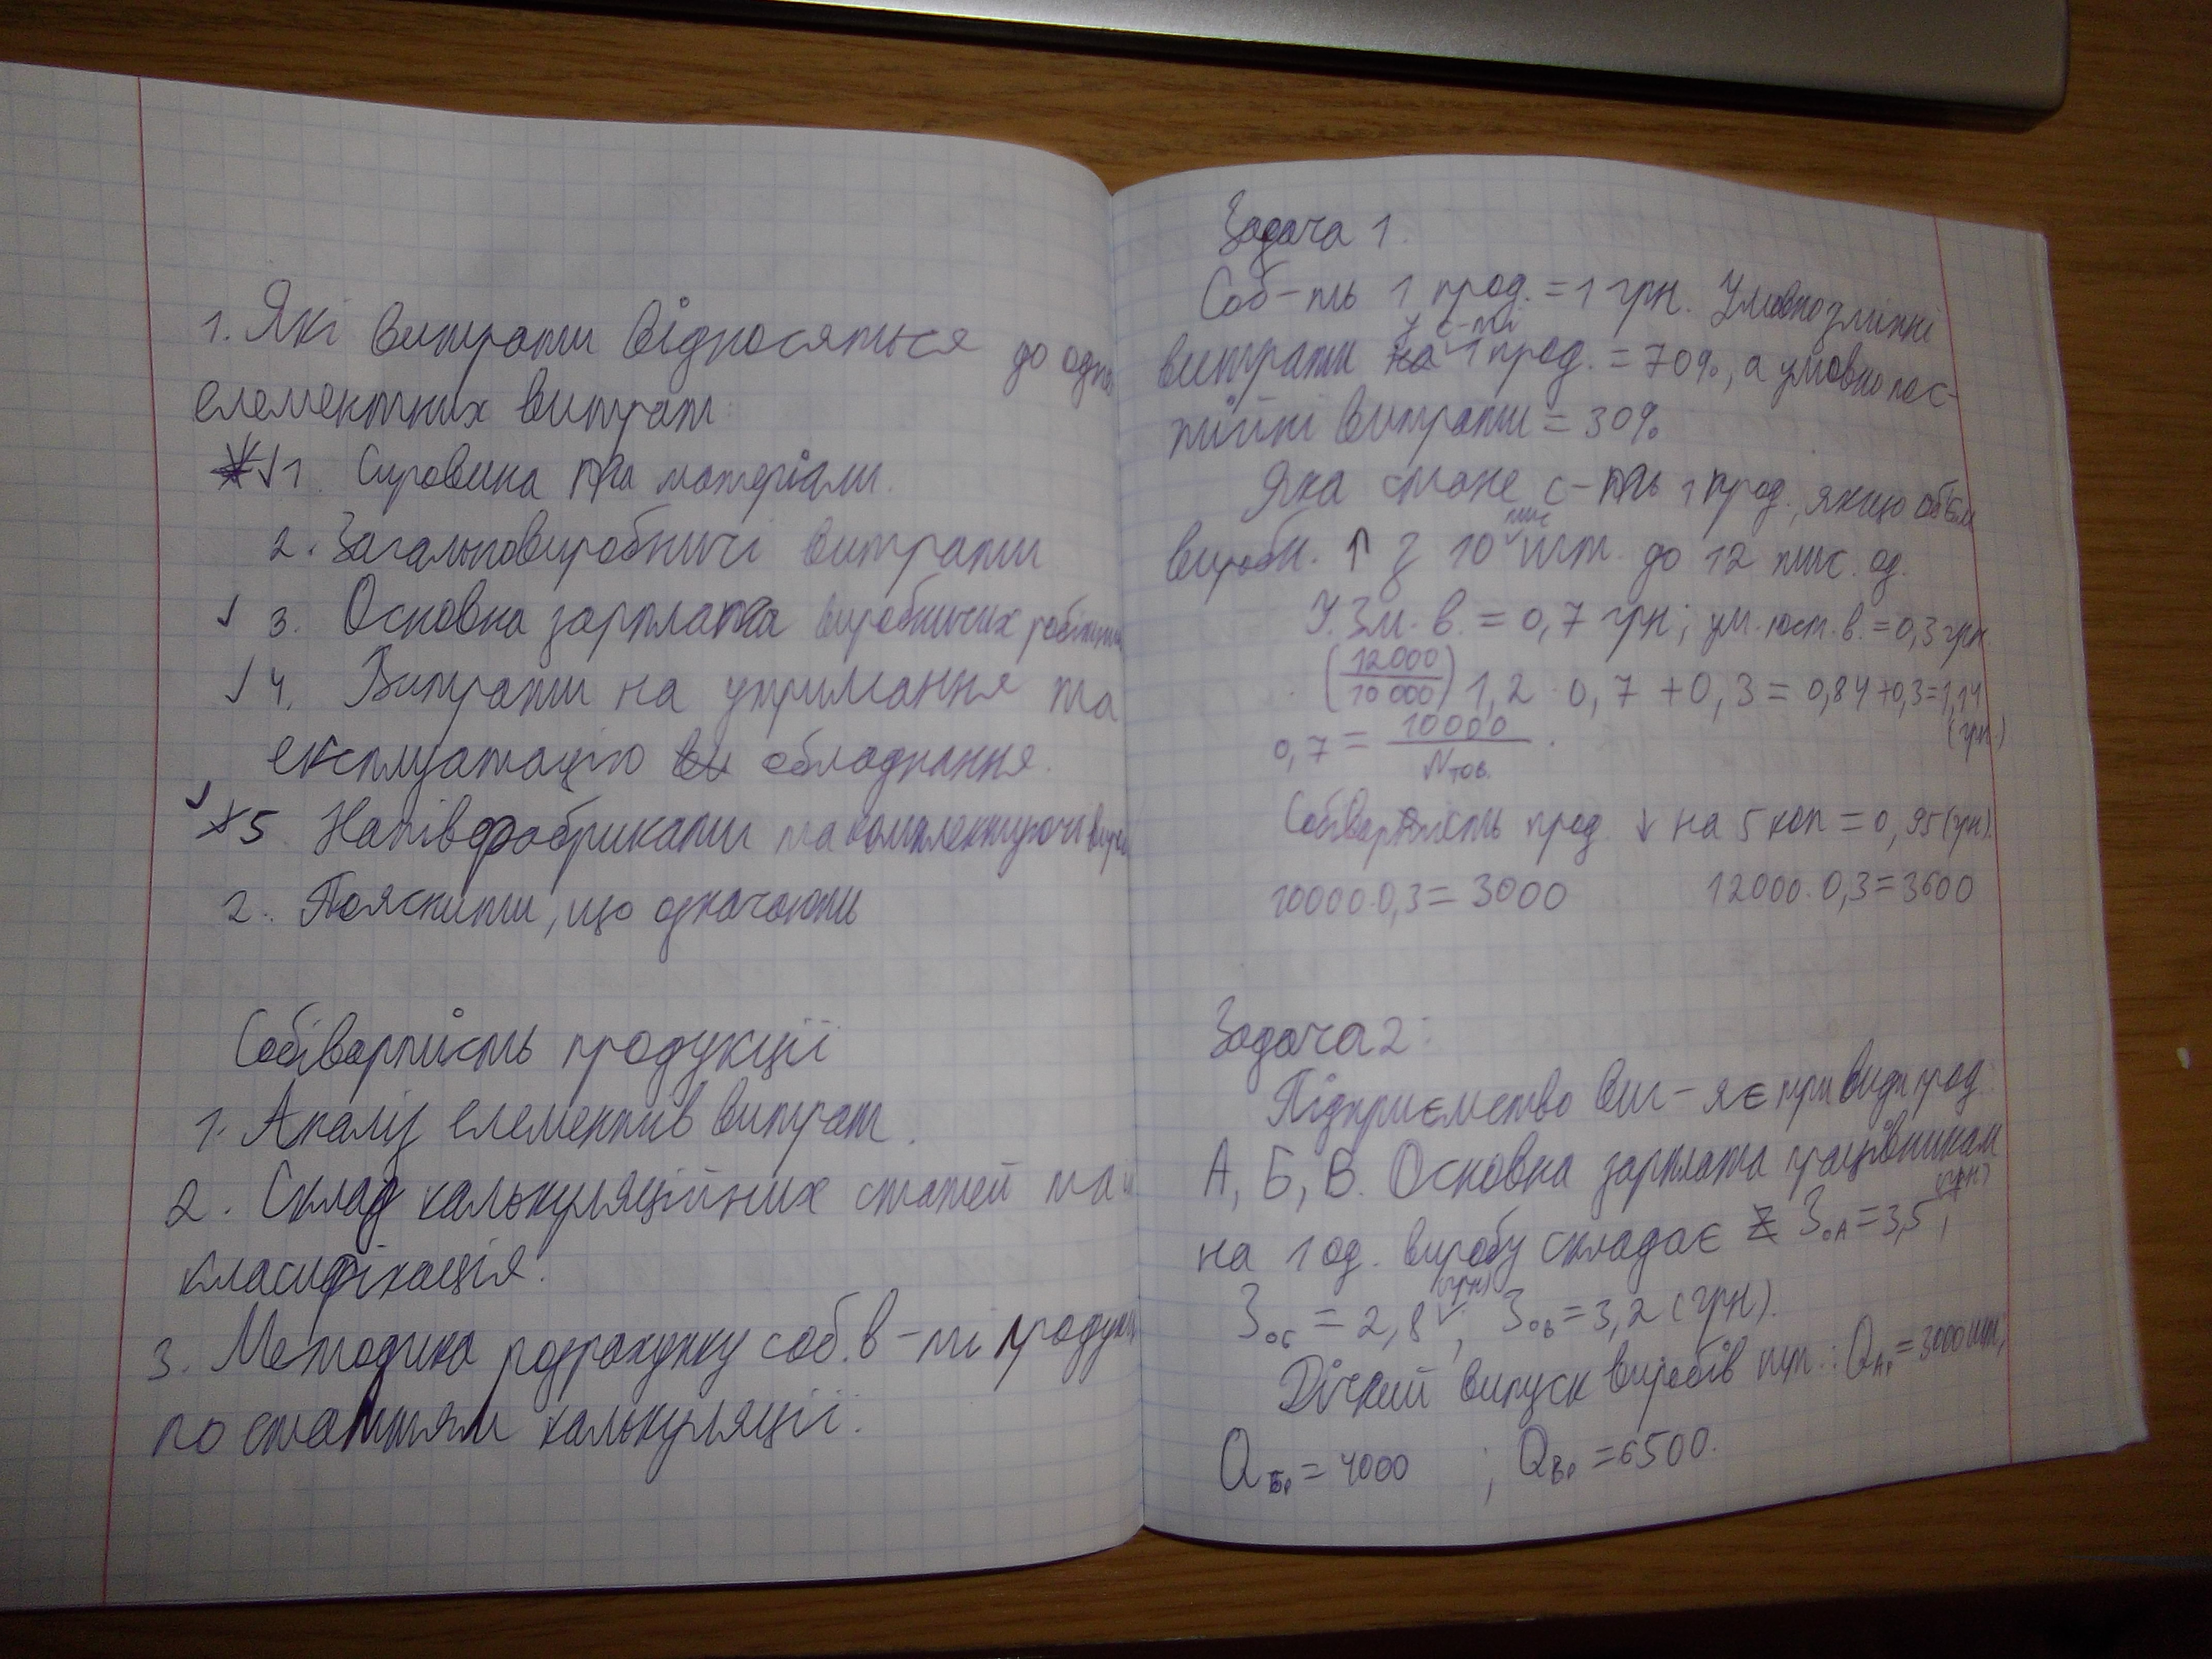 1. Які витрати відносяться до одно
елементних витрат:
√1. Сировина та матеріали.
2. Загальновиробничі витрати
√ 3. Основна зарплата виробничих робітни
√ 4. Витрати на утримання та
експлуатацію обладнання.
√ 5. Напівфабрикати та комплектуючі вироб
2. Пояснити, що означають
Собівартість продукції
1. Аналіз елементів витрат.
2. Склад калькуляційних статей та ї
класифікація.
3. Методика розрахунку соб.в-ті продукц
по статтям калькуляції.
Задача 1.
Соб-ть 1 прод. = 1 грн. Умовнозмінні
витрати у с-ті 1 прод. = 70%, а умовно пос-
тійні витрати = 30%
Яка стане с-ть 1 прод., якщо об'єм
виробн. ↑ з 10 тис шт. до 12 тис. од.
У. Зм. в. = 0,7 грн; ум. пост. в. = 0,3 грн.
(12000/10 000) 1,2 · 0,7 + 0,3 = 0,84 + 0,3 = 1,14
(грн.)
0,7 = 10000/Nтов.
Собівартість прод. ↓ на 5 коп = 0,95 (грн).
10000·0,3 = 3000 12000·0,3 = 3600
Задача 2:
Підприємство виг-яє три види прод:
А, Б, В. Основна зарплата працівникам
на 1 од. виробу складає ЗоА = 3,5 (грн);
ЗоБ = 2,8 (грн); ЗоВ = 3,2 (грн).
Річний випуск виробів шт.: QАр = 3000 шт;
QБр = 4000 ; QВр = 6500.